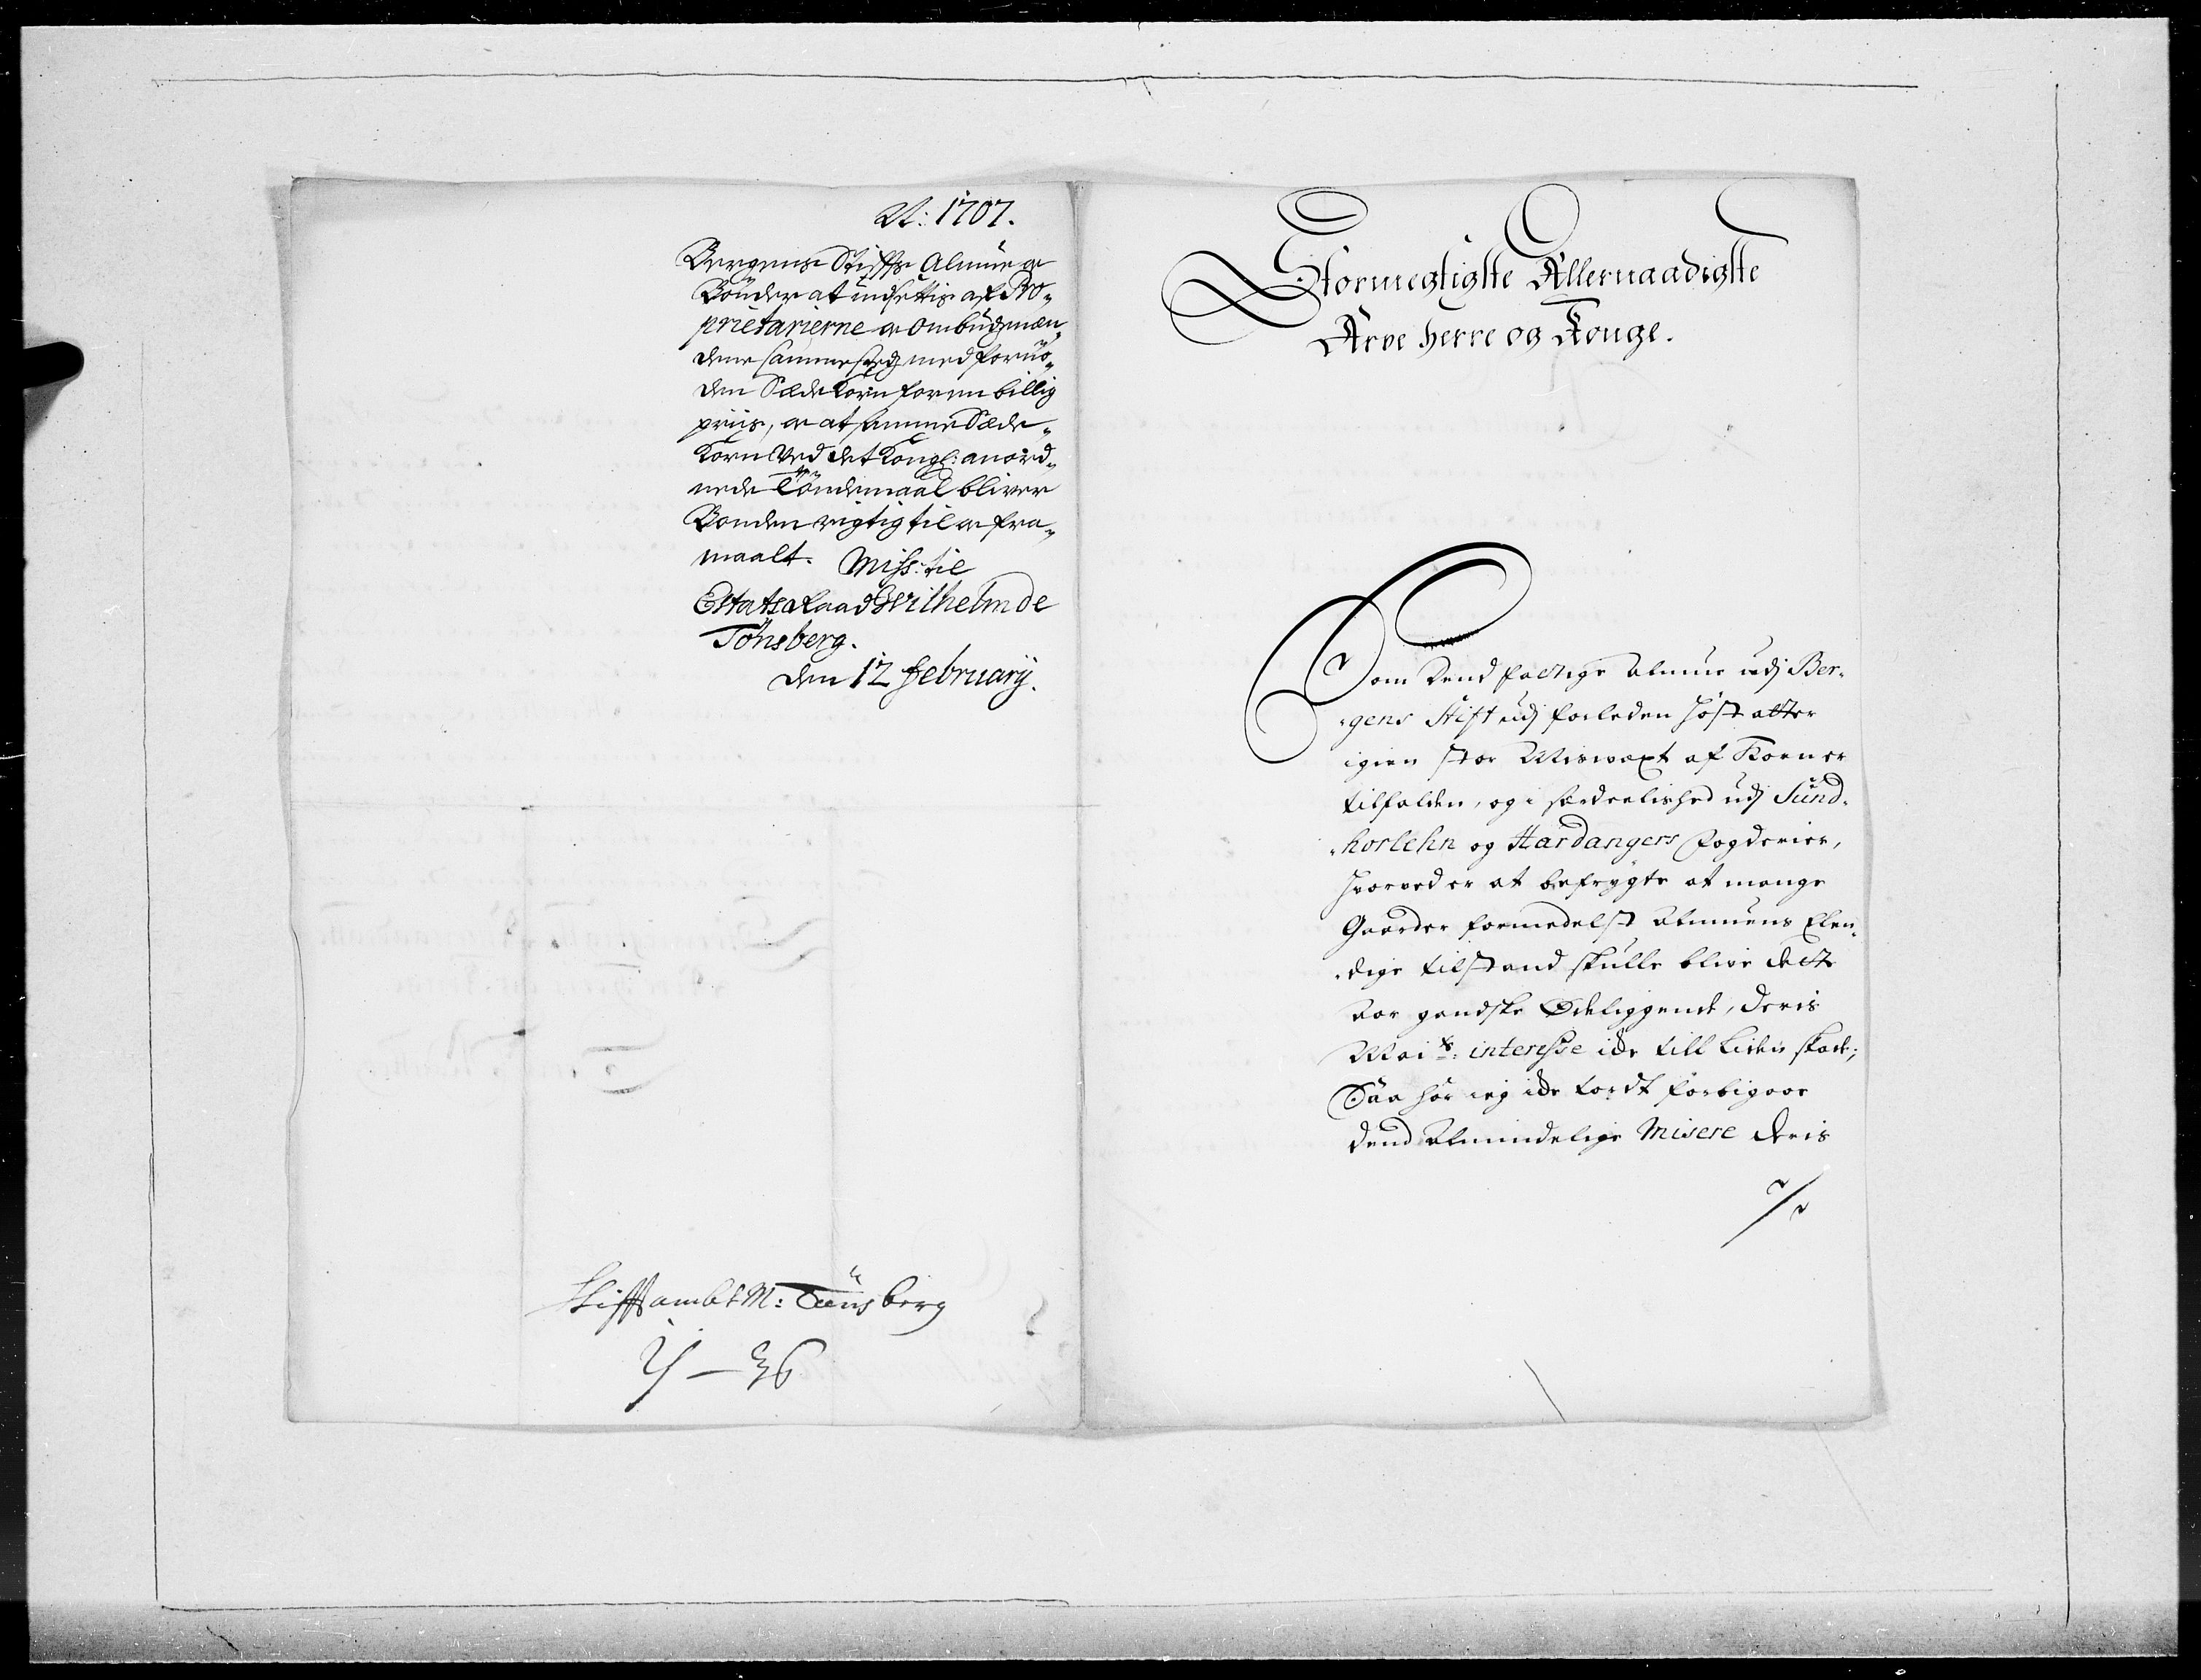 A: 1707.
Bergens Stiffts Almue oc
Bönder at undsettis af Pro-
prietarierne oc Ombudzmæn-
dene sammestedz med fornö-
den Sæde Korn for en billig
priis, oc at samme Sæde-
Korn ved det Kongl: anord-
nede Töndemaal bliver
Bonden rigtig til oc fra-
maalt. Miss: til
Etatz Raad Wilhelm de
Tönsberg.
den 12 February.
Stifftambt M: Tönsberg
Stormegtigste Allernaadigste
Arve Herre og Konge.
Som dend fattige Almue udj Ber-
gens Stift udj forleden Höst atter
igien stor Misvext af Korn er
tilfalden, og i særdeelished udj Sund-
horlehn og Hardangers Fogderier,
hvorved er at befrygte at mange
Gaarder formedelst Almuens Elen-
dige tilstand skulle blive dette
Aar gandske Ödeliggende, Deris
Mai: interesse icke till liden skade;
Saa har ieg icke kondt forbigaae
dend Almindelige Misere Deris